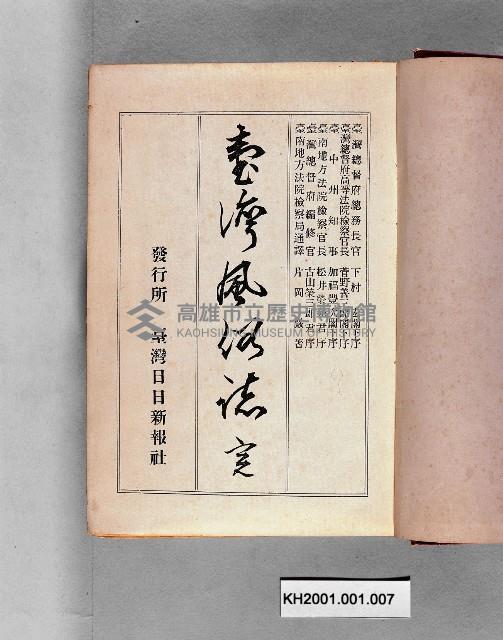 臺灣總督府總務長官 下村 閣下序
臺灣總督府高等法院檢察官長 菅野善三郎閣下序
臺中州知事 加福豐次閣下序
臺南地方法院檢察官長 松井榮堯君序
臺灣總督府編修官 古山榮三郎君序
臺南地方法院檢察局通譯 片岡巖著
臺灣風俗誌 完
發行所 臺灣日日新報社
高雄市立歷史博物館
KAOHSIUNG MUSEUM OF HISTORY
KH2001.001.007